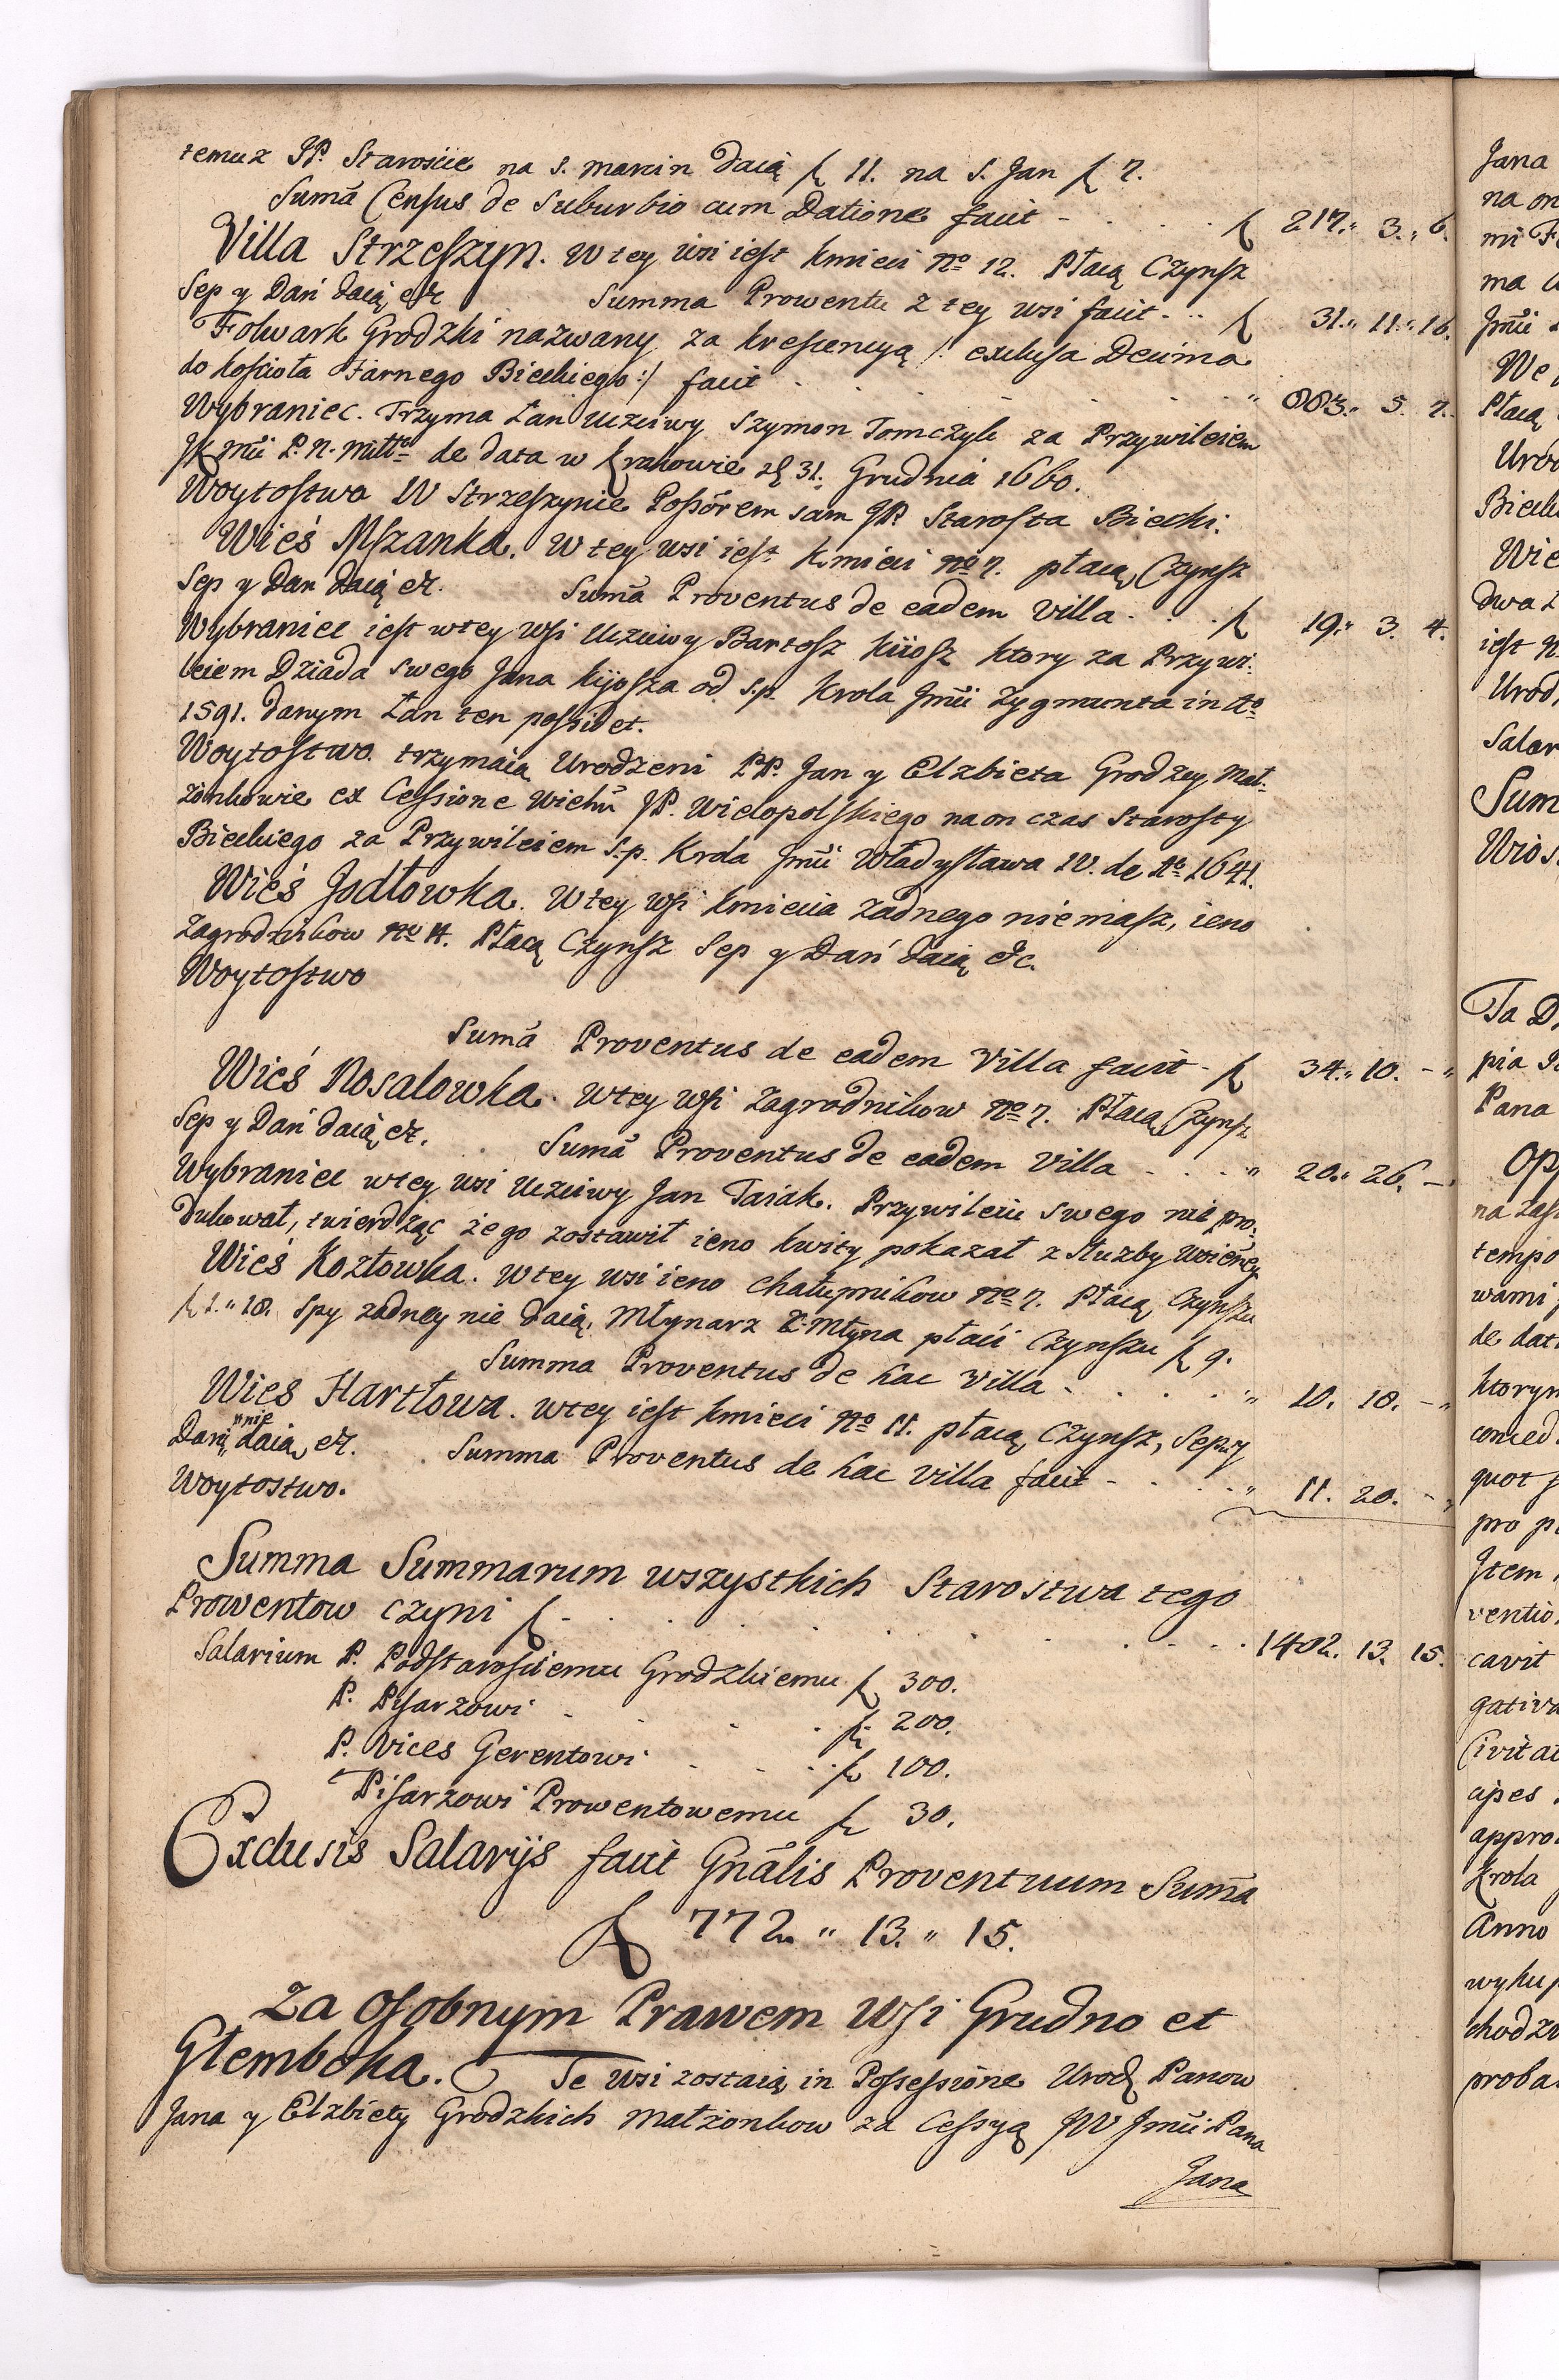 temuz JP. Staroscie na s. Marcin daią f 11. na s. Jan f 7.
Suma Census de Suburbio cum Datione facit - . . . f 217.„ 3.„ 6.
Villa Strzeszyn. W tey wsi iest Kmieci No 12. Płacą Czynsz
Sep y Dań daią etc Summa Prowentu z tey wsi facit - .. f 31.„ 11.„ 16.
Folwark Grodzki nazwany za krescencyą /: exclusa Decima
do kościoła Farnego Bieckiego :/ facit . . . . . . „ 883.„ 5. 7.
Wybraniec. Trzyma Łan Uczciwy Szymon Tomczyk za Przywileiem
JK mći P. N. Mitto de data w Krakowie d 31. Grudnia 1660.
Woytostwo w Strzeszynie Possorem sam JP. Starosta Biecki.
Wieś Mszanka. W tey wsi iest Kmieci No 7. płacą Czynsz
Sep y Dan daią etc. Suma Proventus de eadem Villa . . . f 19.„ 3. 4.
Wybraniec iest w tey wsi Uczciwy Bartosz Kiiosz ktory za Przywi-
leiem Dziada swego Jana Kijosza od s.p. Krola Jmći Zygmunta in Ao
1591. danym Łan ten possidet.
Woytostwo. trzymaią Urodzeni PP. Jan y Elzbieta Grodzcy Mał-
żonkowie ex Cessione Wielm JP. Wielopolskiego na on czas Starosty
Bieckiego za Przywileiem s.p. Krola Jmći Władysława IV. de Ao 1641.
Wieś Jodłowka. W tey wsi Kmiecia zadnego niemasz, ieno
Zagrodnikow No 14. Płacą Czynsz Sep y Dań daią etc.
Woytostwo
Suma Proventus de eadem Villa facit - f 34.„ 10. - „
Wieś Rosalowka. W tey wsi Zagrodnikow No 7. Płacą Czynsz
Sep y Dań daią etc. . . Suma Proventus de eadem Villa - . . . „ 20.„ 26. -
Wybraniec w tey wsi Uczciwy Jan Taiak. Przywileiu swego nie pro-
dukował, twierdząc że go zostawił ieno kwity pokazał z Służby Woienney
Wieś Kozłowka. W tey wsi ieno chałupnikow No 7. Płacą Czynszu
f 1.„ 18. Spy zadney nie daią. Młynarz z Młyna płaci Czynszu f 9.
Summa Proventus de hac Villa - . . . . „ 10. 18. - „
Wies Hartlowa. W tey iest kmieci No 11. płacą Czynsz, Sepu y
Dani „nie„ daią etc. . Summa Proventus de hac villa facit - . . . „ 11. 20. - „
Woytostwo.
Summa Summarum wszystkich Starostwa tego
Prowentow czyni f - . . . . . . . . . 1402. 13. 15.
Salarium P. Podstarosciemu Grodzkiemu f 300.
P. Pisarzowi - . . . f 200.
P. Vices Gerentowi . . . . f 100.
Pisarzowi Prowentowemu f 30.
Exclusis Salarijs facit Gnalis Proventuum Suma
f 772. „ 13. „ 15.
Za osobnym Prawem Wsi Grudno et
Głemboka. Te Wsi zostaią in Possessione Urodz Panow
Jana y Elzbiety Grodzkich Małżonkow za Cessyą JW Jmći Pana
Jana